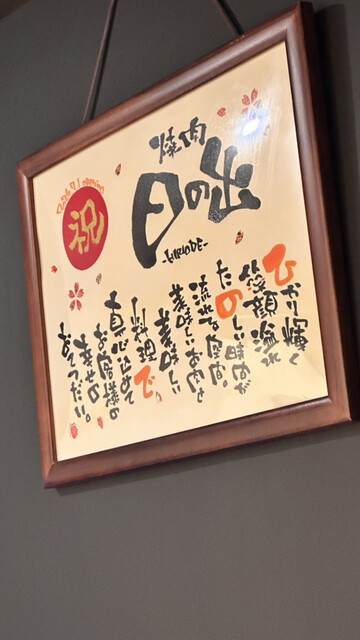 焼肉
日の出
-HINODE-
祝
ひかり輝く
笑顔溢れ
たのしい時間が
流れる空間
美味しいお肉と
美味しい
料理で
真心込めて
お客様の
幸せの
おてつだい。